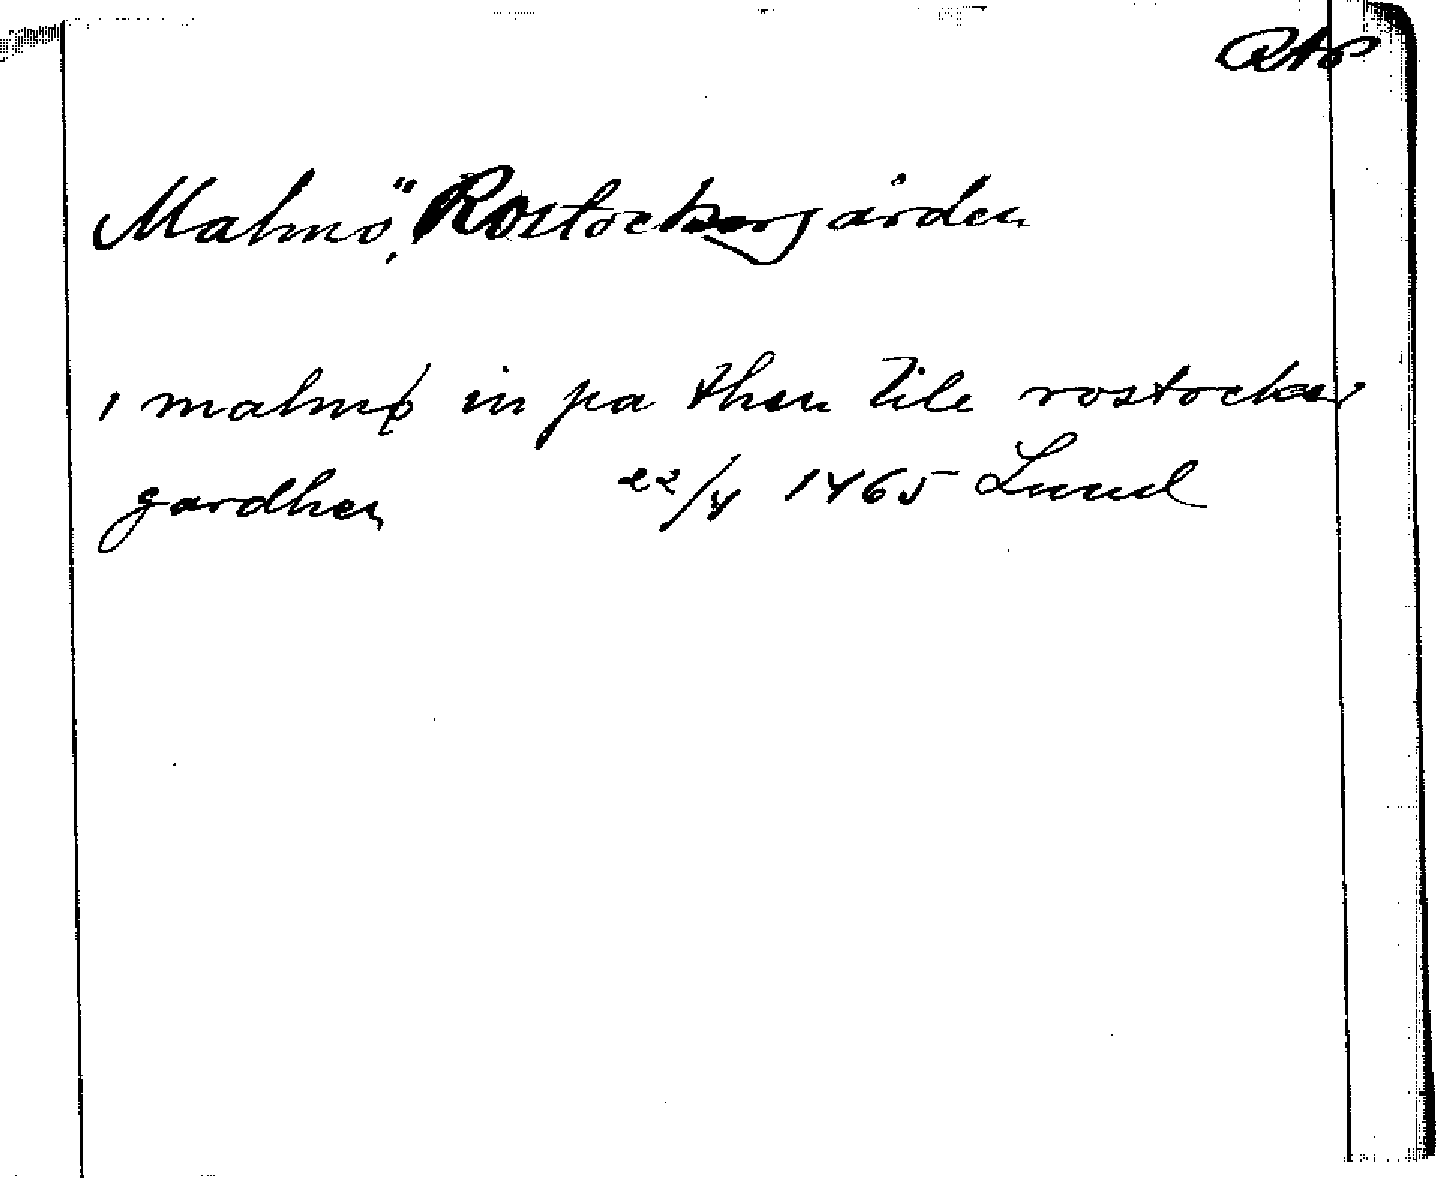 RAp
Malmö, Rostockergården
i malmø in pa then lile rostocker
gardhen 22/4 1465 Lund